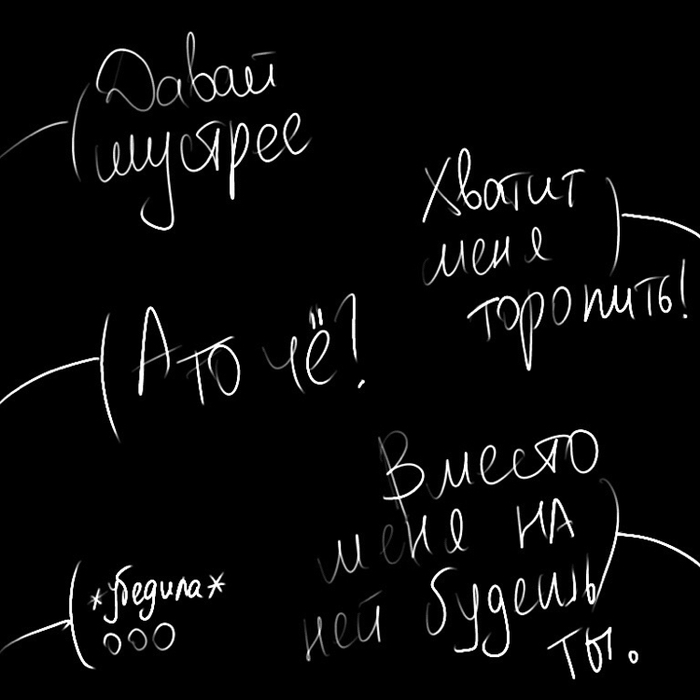 Давай
шустрее
Хватит
меня
торопить!
А то чё?
Вместо
меня на
ней будешь
ты.
*убедила*
ооо